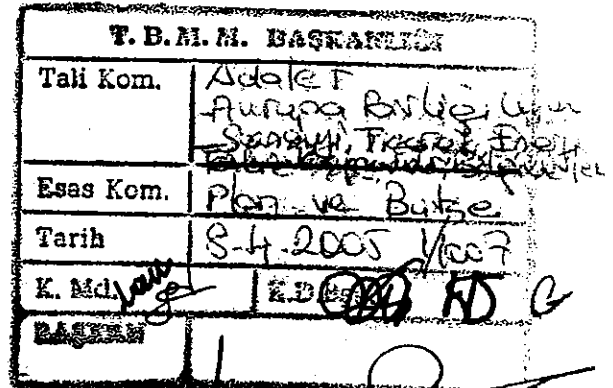 T. B. M. M. BAŞKANLIĞI
Tali Kom. Adalet
Avrupa Birliği Uyum
Sanayi, Ticaret, Enerji
Esas Kom. Plan ve Bütçe
Tarih 8-4-2005 1/1007
K. Md.
BAŞKAN